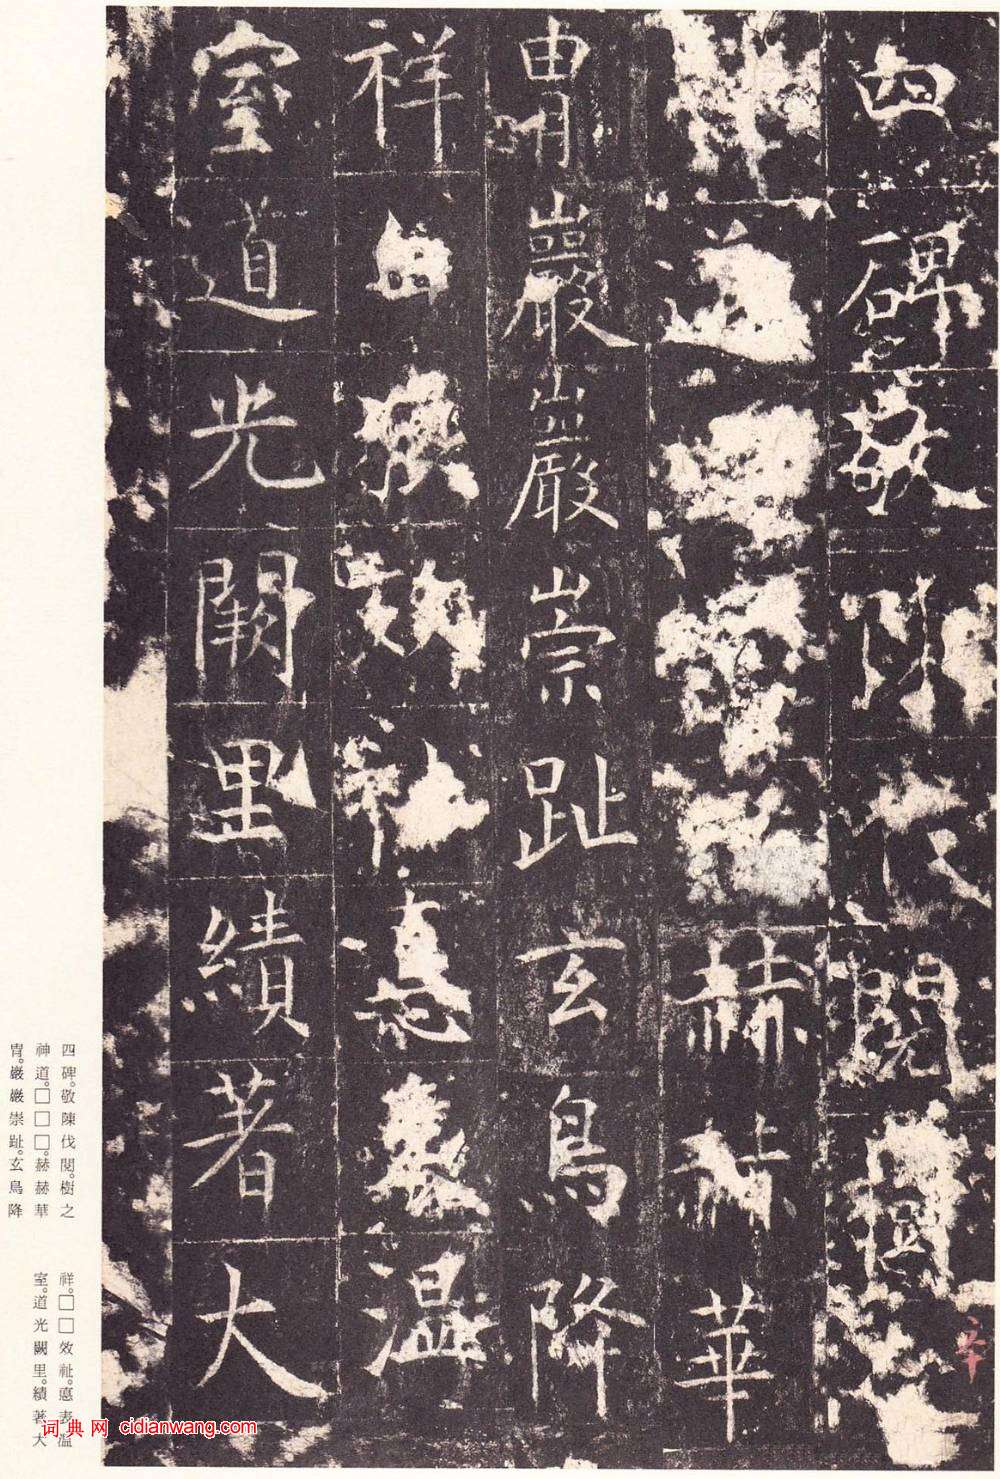 四碑敬陳伐閱樹
道赫赫華
胄巖巖崇趾玄鳥降
祥效祉溫
室道光闕里績著大
四碑。敬陳伐閱。樹之
神道。□□□。赫赫華
胄。巖巖崇趾。玄鳥降
祥。□□效祉。溫
室。道光闕里。績著大
词典网 cidianwang.com